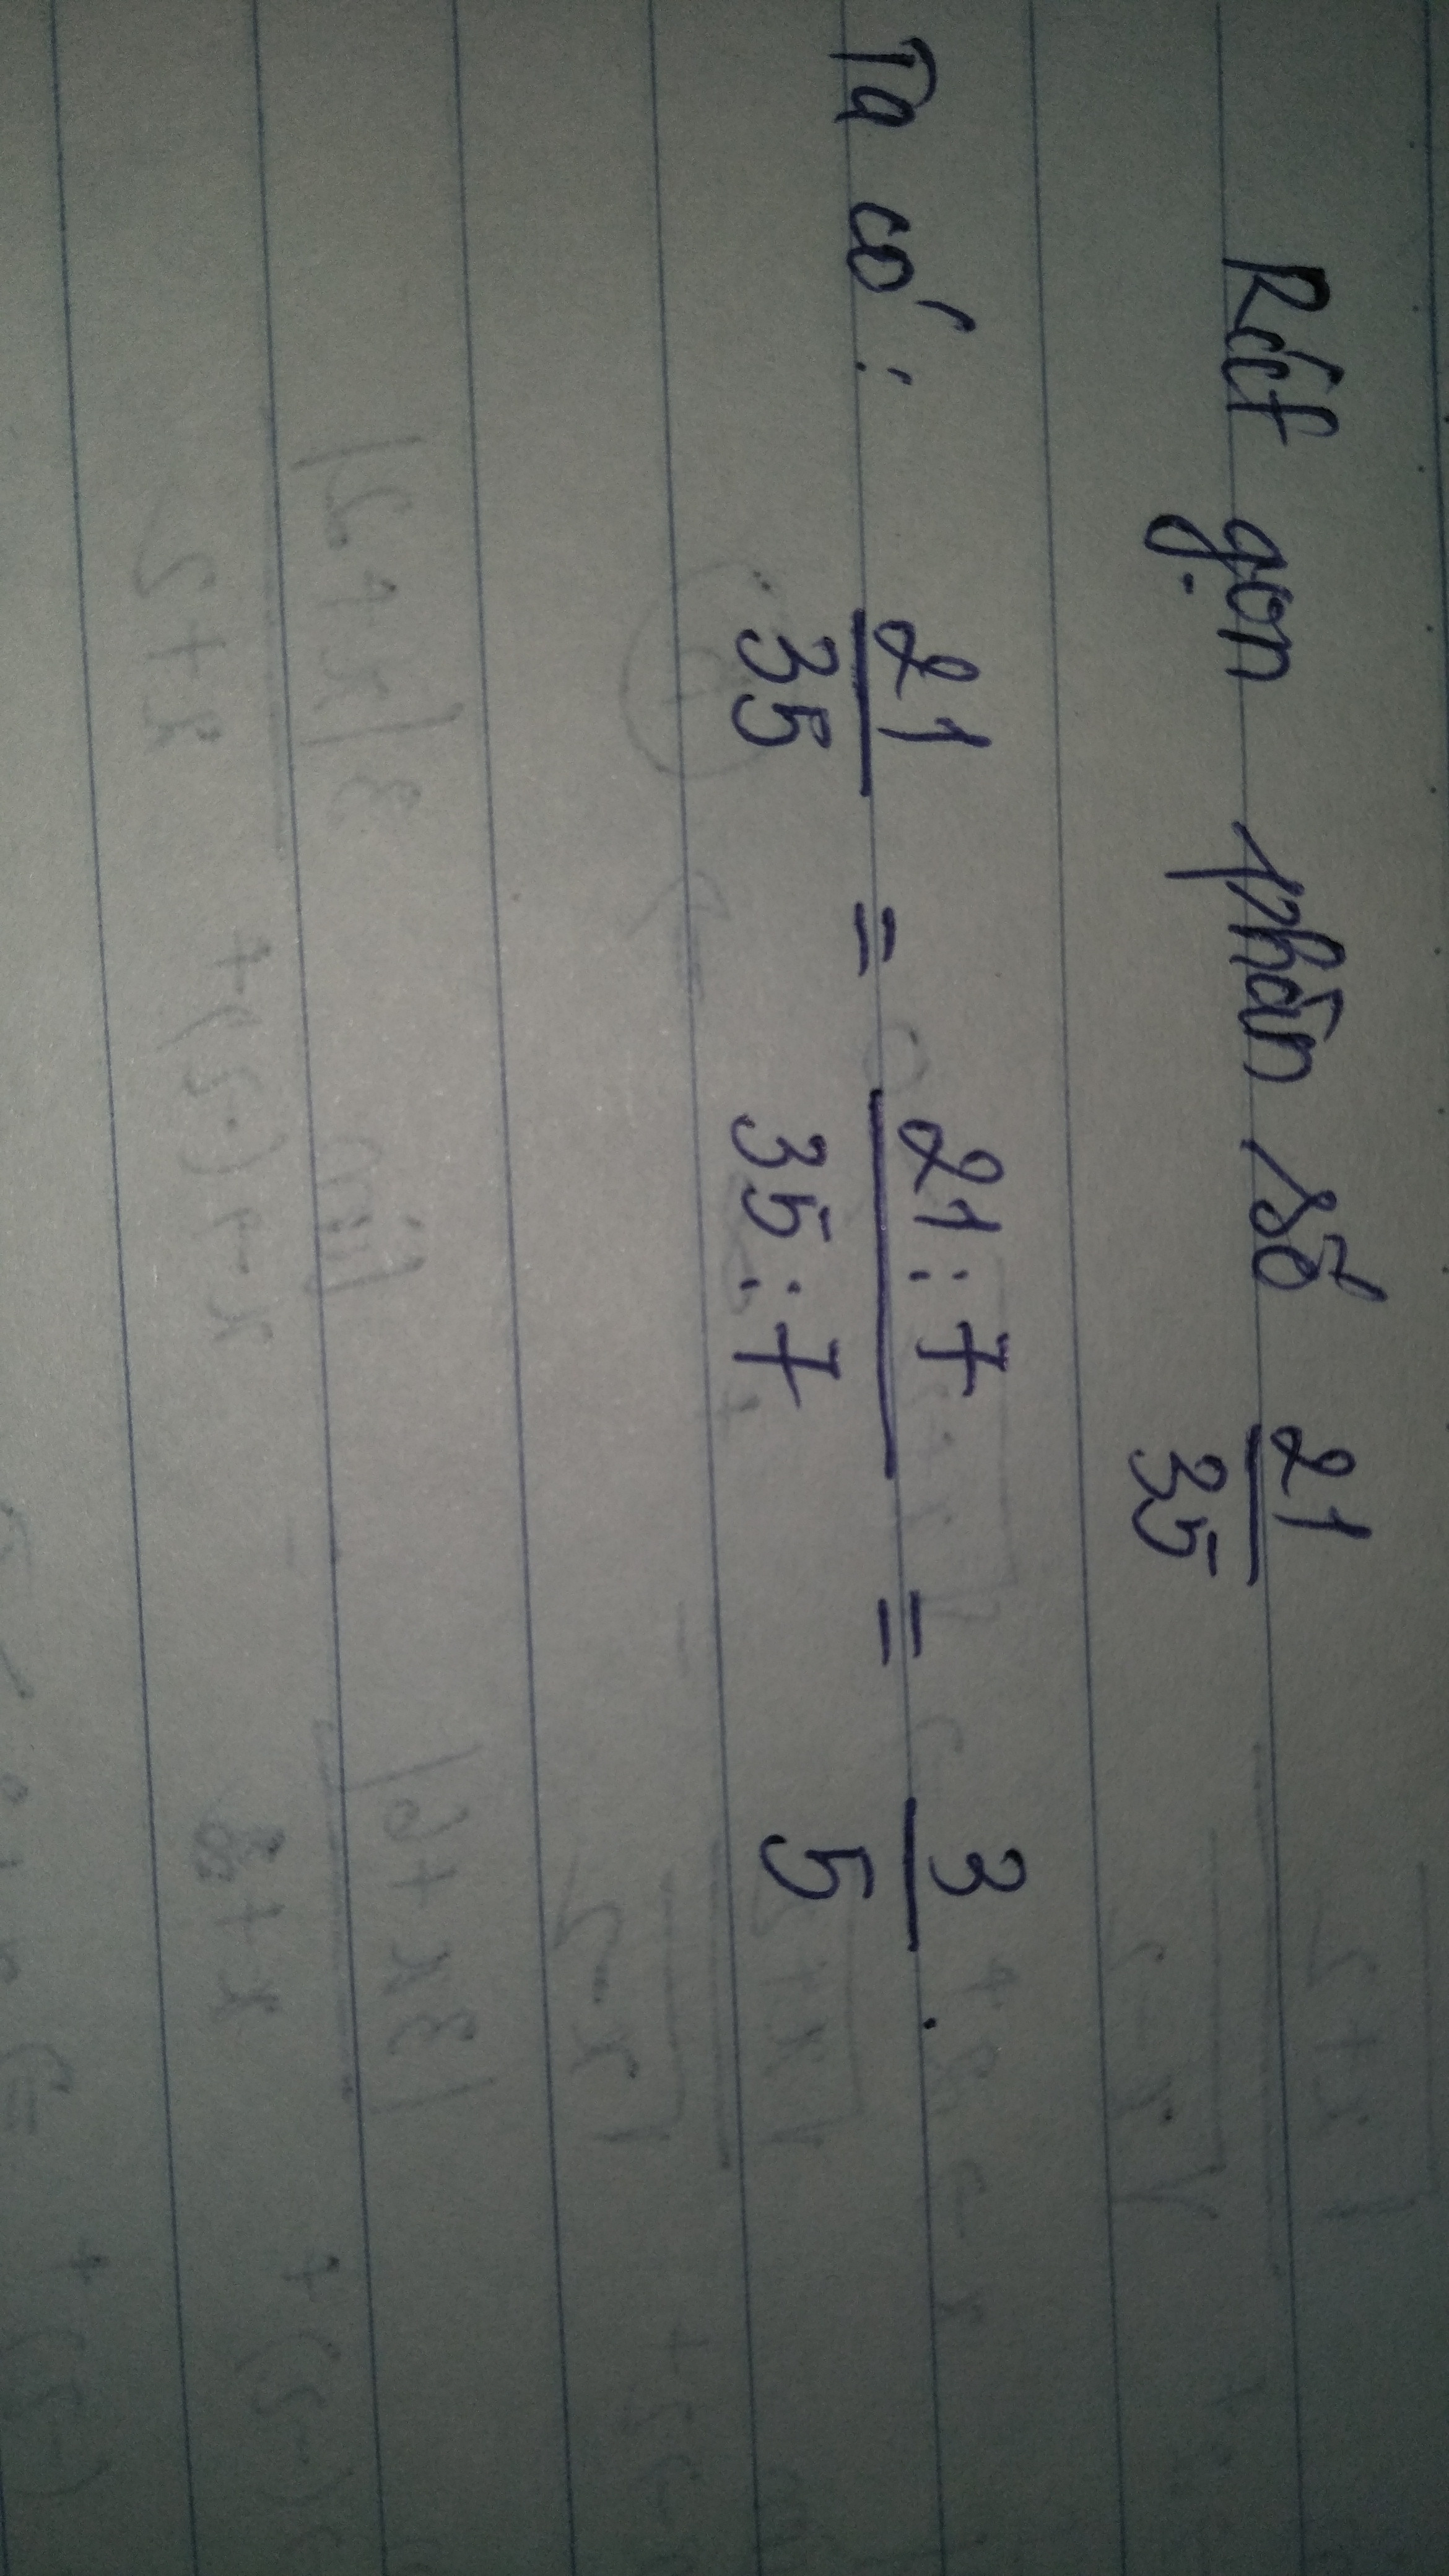 Rút gọn phân số 21/35
Ta có: 21/35 = 21:7/35:7 = 3/5.